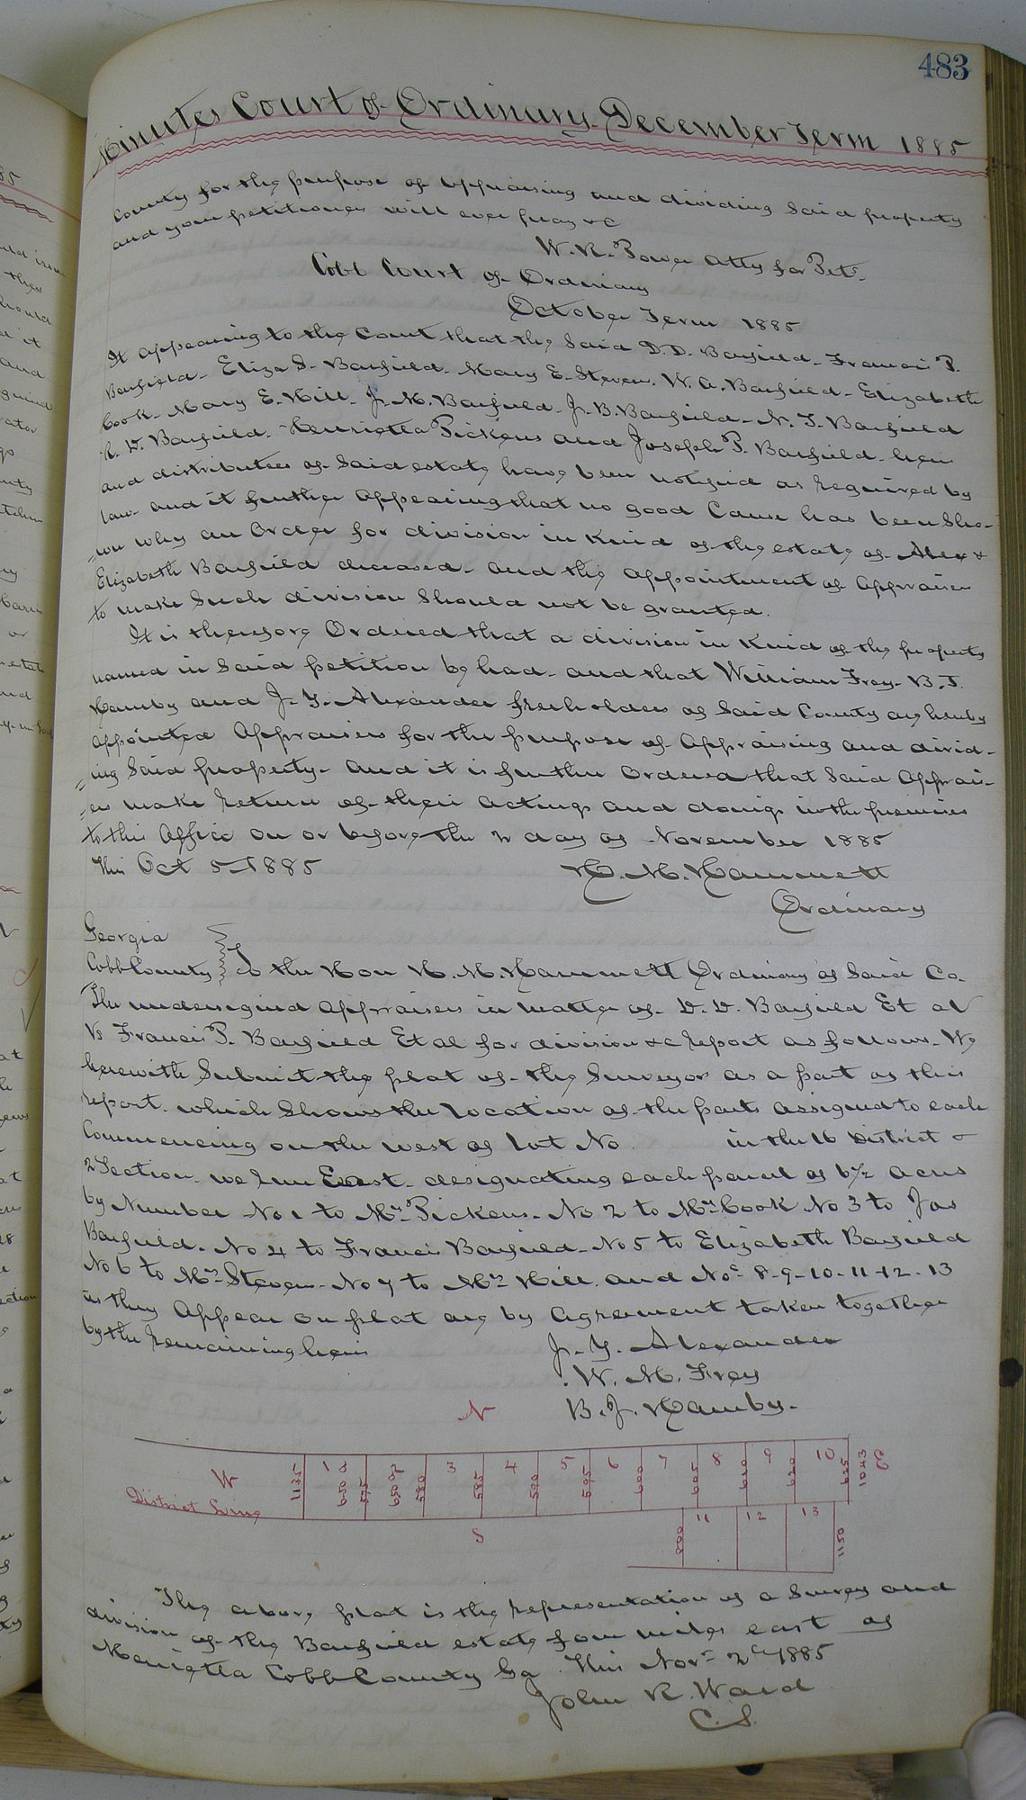 483
Minutes Court of Ordinary December Term 1885
County for the purpose of appraising and dividing said property
and your petitioner will ever pray &c
W. R. Power Atty for Pets.
Cobb Court of Ordinary
October Term 1885
It appearing to the Court that the said D. D. Barfield - Francis P.
Barfield - Eliza S. Barfield - Mary E. Steven. W. A. Barfield - Elizabeth
Cook - Mary E. Hill - J. M. Barfield - J. B. Barfield - N. T. Barfield
R. D. Barfield. Henrietta Pickens and Joseph P. Barfield - heirs
and distributees of said estate have been notified as required by
law - and it further appearing that no good Cause has been Sho-
=wn why an Order for division in kind of the estate of Alex &
Elizabeth Barfield deceased - and the appointment of appraisers
to make such division should not be granted.
It is therefore Ordered that a division in kind of the property
named in said petition be had - and that William Frey - B. J.
Hamby and J. G. Alexander freeholders of said County are hereby
appointed Appraisers for the purpose of appraising and divid-
=ing said property - and it is further ordered that said apprais-
=ers make return of their actings and doings in the premises
to this Office on or before the 2 day of November 1885
This Oct 5 - 1885 H. M. Hammett
Ordinary
Georgia
Cobb County To the Hon H. M. Hammett Ordinary of said Co.
The undersigned appraisers in matter of D. D. Barfield Et al
Vs Francis P. Barfield Et al for division &c report as follows - We
herewith submit the plat of the Surveyor as a part of this
report. which shows the location of the parts assigned to each
Commencing on the west of Lot No in the 16 District &
2 Section - we run East - designating each parcel of 6 1/2 acres
by Number No 1 to Mrs Pickens - No 2 to Mrs Cook No 3 to Jas
Barfield - No 4 to Francis Barfield - No 5 to Elizabeth Barfield
No 6 to Mrs Steven - No 7 to Mrs Hill. and Nos 8-9-10-11-12-13
as they appear on plat are by agreement taken together
by the remaining heirs
J. G. Alexander
W. M. Frey
B. J. Hamby -
N
W 1135 1 575 580 3 585 4 590 5 595 6 600 7 605 8 9 10 625 1043
District Line
S 11 12 13 1150
The above plat is the representation of a survey and
division of the Barfield estate four miles east of
Marietta Cobb County Ga This Nov 2d 1885
John R. Ward
C. S.